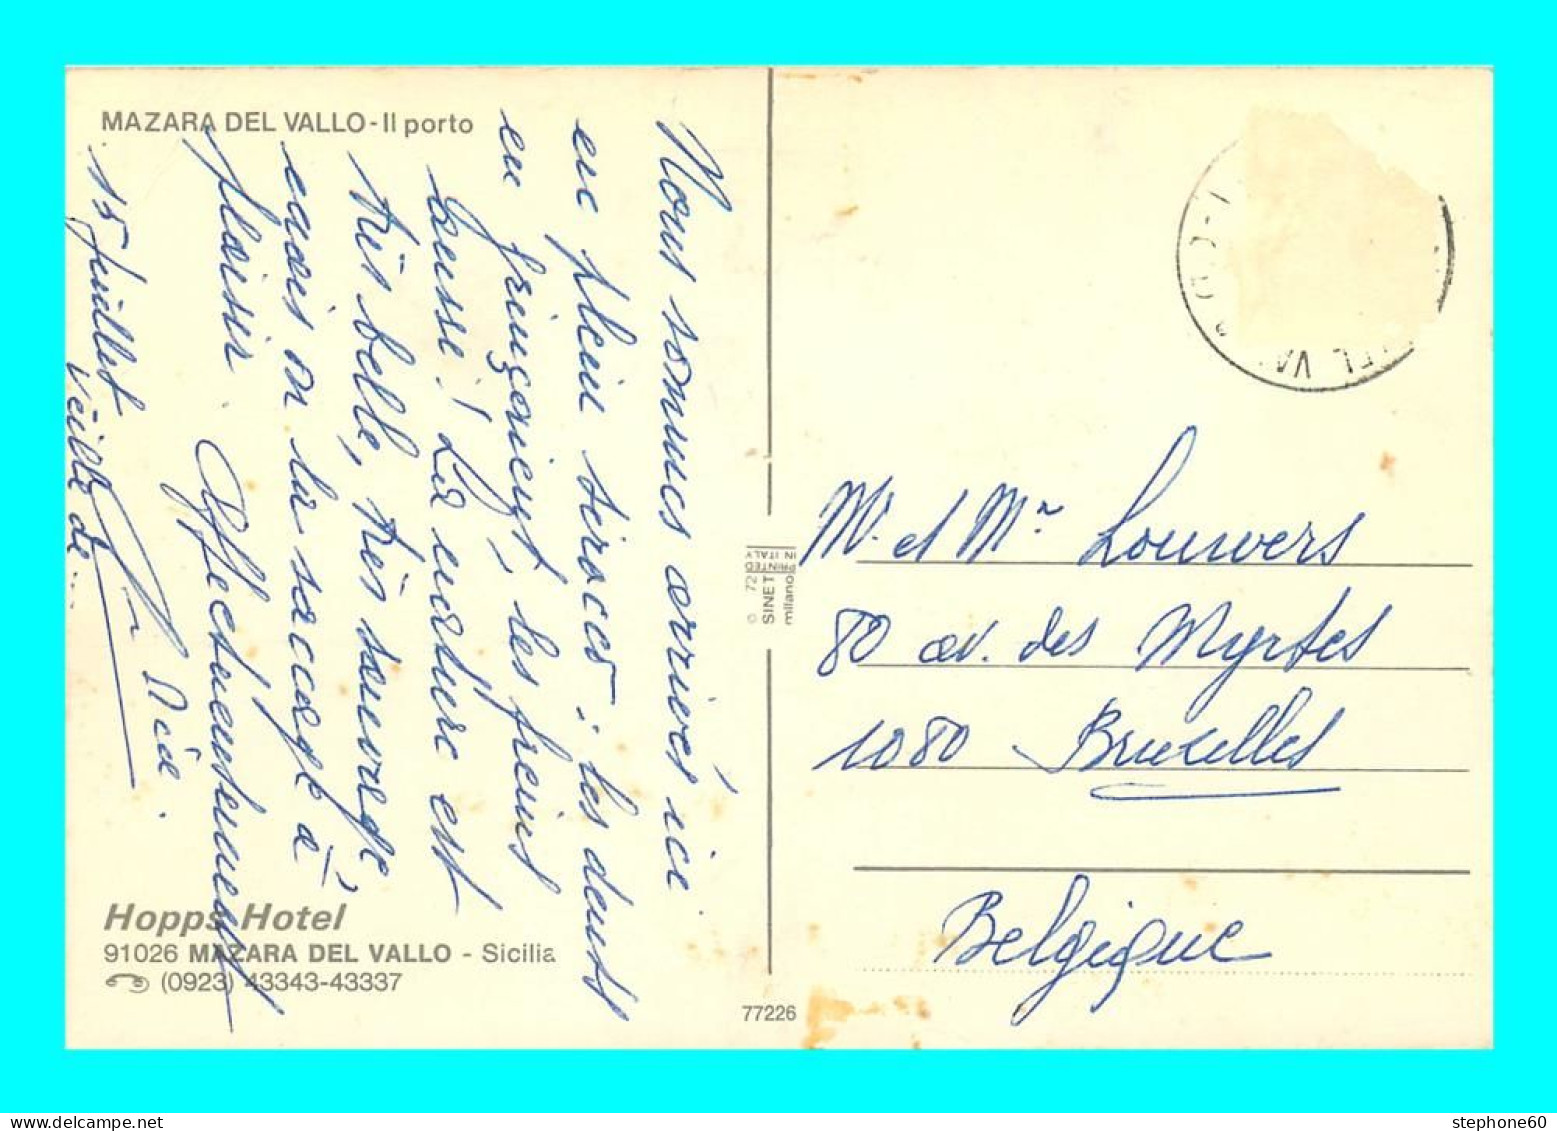 MAZARA DEL VALLO - Il porto
15 juillet
veille de...
Nous sommes arrivés ici
en plein sirocco : les dents
en grinçaient, les freins
aussi ! La verdure est
très belle, très sauvage,
mais on la saccage à
plaisir.
Affectueusement
Hopps Hotel
91026 MAZARA DEL VALLO - Sicilia
(0923) 43343-43337
77226
© 72
SINET
milano
PRINTED
IN ITALY
EL VA
M. et Mr Louwers
80 av. des Myrtes
1080 Bruxelles
Belgique
stephone60